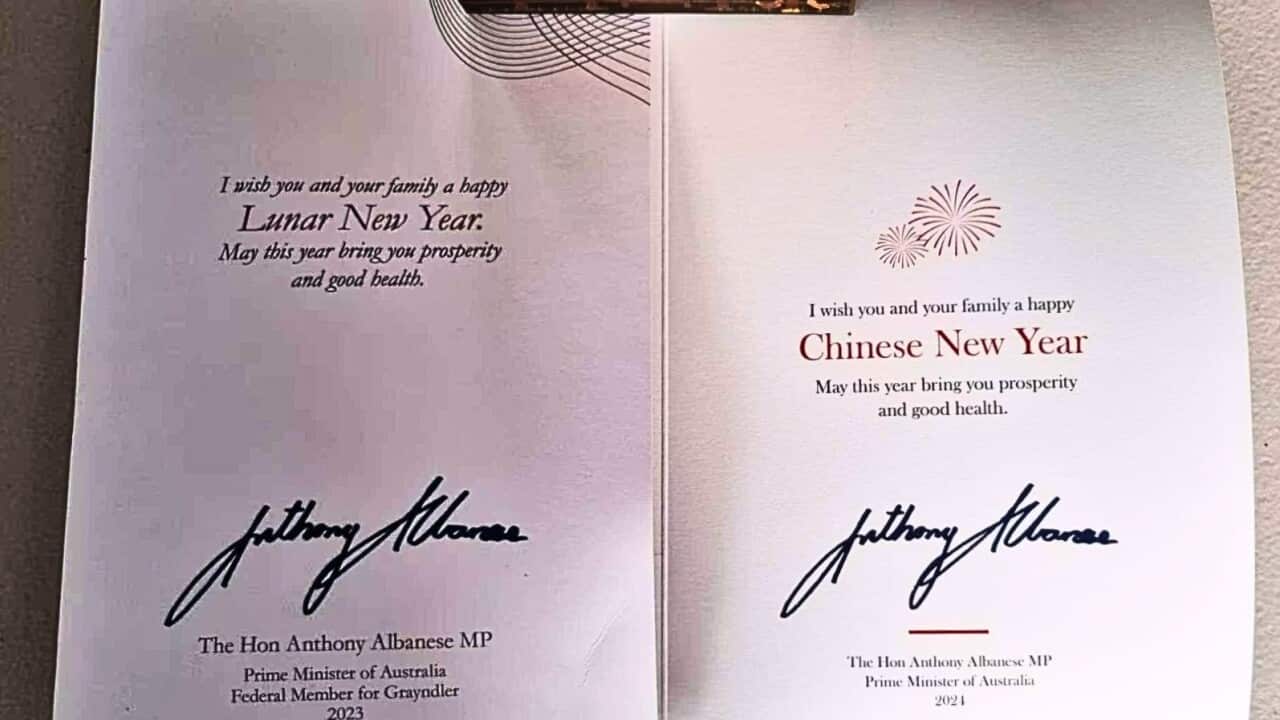 I wish you and your family a happy
Lunar New Year.
May this year bring you prosperity
and good health.
Anthony Albanese
The Hon Anthony Albanese MP
Prime Minister of Australia
Federal Member for Grayndler
2023
I wish you and your family a happy
Chinese New Year
May this year bring you prosperity
and good health.
Anthony Albanese
The Hon Anthony Albanese MP
Prime Minister of Australia
2024